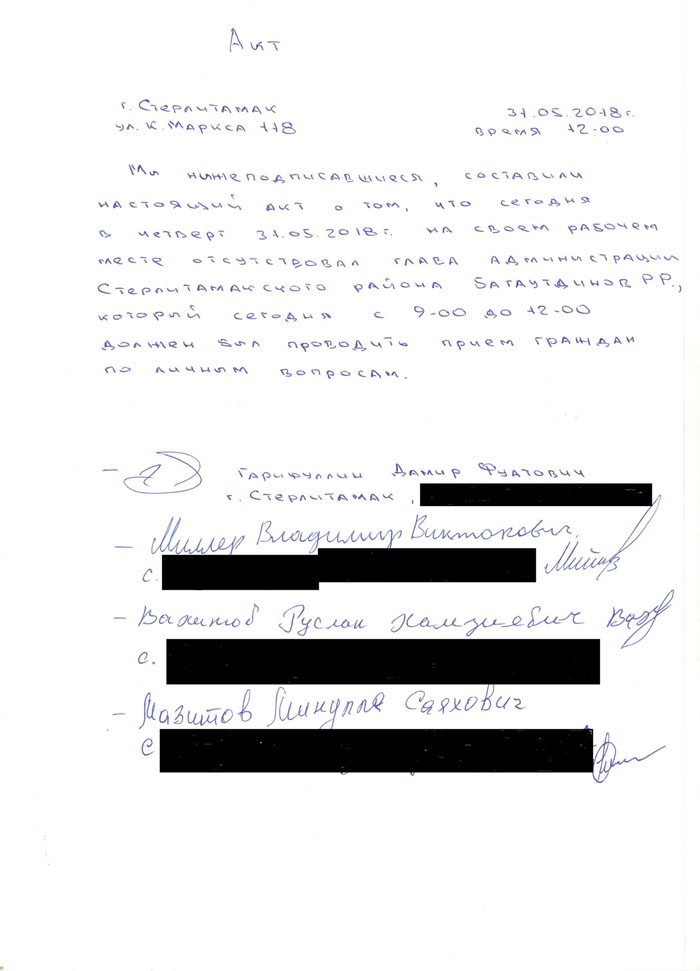 Акт
г. Стерлитамак
ул. К. Маркса 118
31.05.2018г.
время 12-00
Мы нижеподписавшиеся, составили
настоящий акт о том, что сегодня
в четверг 31.05.2018г. на своем рабочем
месте отсутствовал глава администрации
Стерлитамакского района Багаутдинов Р.Р.,
который сегодня с 9-00 до 12-00
должен был проводить прием граждан
по личным вопросам.
- Гарифуллин Дамир Фуатович
г. Стерлитамак,
- Миллер Владимир Викторович.
с.
- Вахитов Руслан Хамзиевич
с.
- Мазитов Минулла Саяхович
с